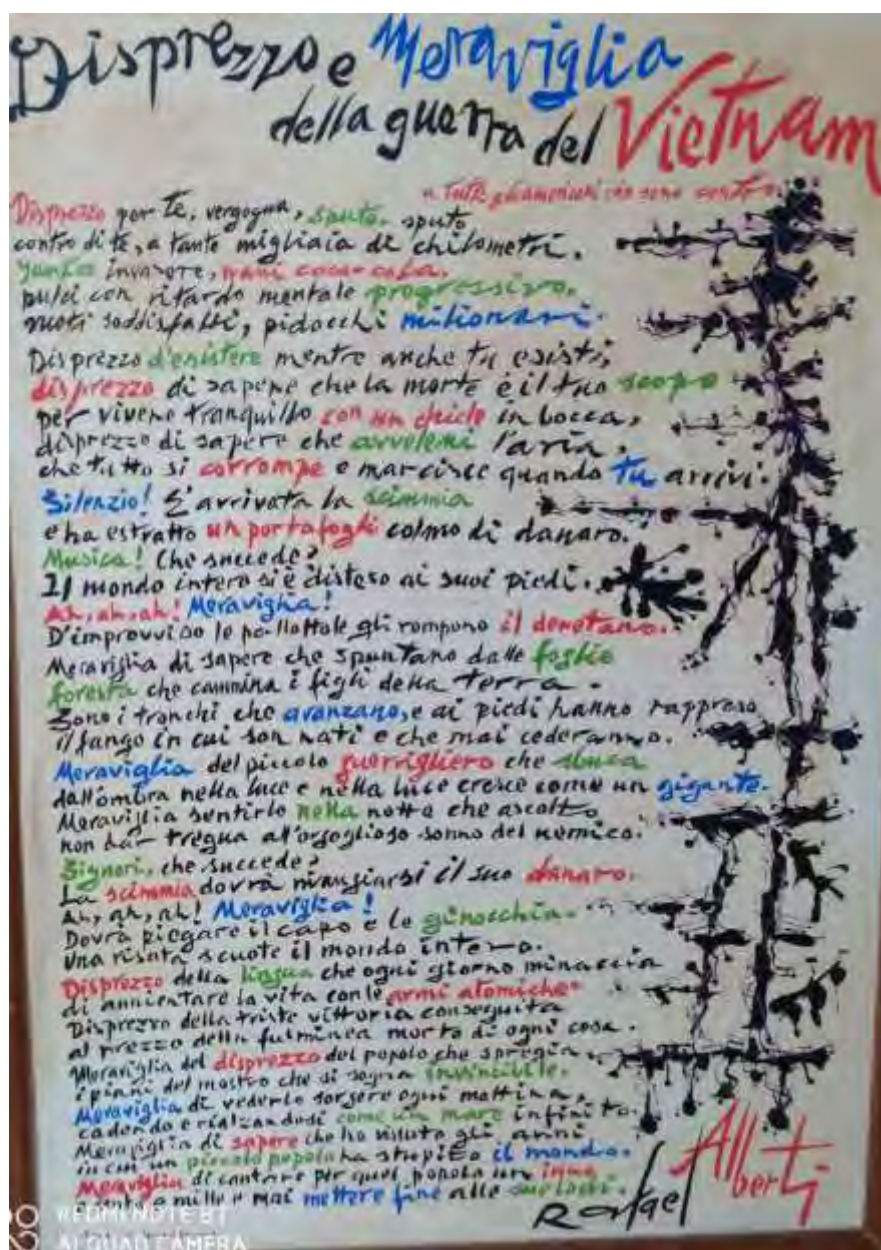 Disprezzo e Meraviglia
della guerra del Vietnam
a tutti gli americani che sono contro.
Disprezzo per te, vergogna, sputo, sputo
contro di te, a tante migliaia di chilometri.
Yankee invasore, nani coca-cola,
pulci con ritardo mentale progressivo,
soddisfatti, pidocchi milionari.
Disprezzo d'esistere mentre anche tu esisti,
disprezzo di sapere che la morte è il tuo scopo
per vivere tranquillo con un chicle in bocca,
disprezzo di sapere che avveleni l'aria,
che tutto si corrompe e marcisce quando tu arrivi.
Silenzio! E' arrivata la scimmia
e ha estratto un portafogli colmo di danaro.
Musica! Che succede?
Il mondo intero si è disteso ai suoi piedi.
Ah, ah, ah! Meraviglia!
D'improvviso le pallottole gli rompono il deretano.
Meraviglia di sapere che spuntano dalle foglie
foresta che cammina i figli della terra.
Sono i tronchi che avanzano, e ai piedi hanno rappreso
il fango in cui son nati e che mai cederanno.
Meraviglia del piccolo guerrigliero che sbuca
dall'ombra nella luce e nella luce cresce come un gigante.
Meraviglia sentirlo nella notte che ascolto
non dar tregua all'orgoglioso sonno del nemico.
Signori, che succede?
La scimmia dovrà mangiarsi il suo danaro.
Ah, ah, ah! Meraviglia!
Dovrà piegare il capo e le ginocchia.
Una risata scuote il mondo intero.
Disprezzo della lingua che ogni giorno minaccia
di annientare la vita con le armi atomiche.
Disprezzo della triste vittoria conseguita
al prezzo della fulminea morte di ogni cosa.
Meraviglia del disprezzo del popolo che spregia
i piani del mostro che si sogna invincibile.
Meraviglia di vederlo sorgere ogni mattina,
cadendo e rialzandosi come un mare infinito.
Meraviglia di sapere che ho vissuto gli anni
in cui un piccolo popolo ha stupito il mondo.
Meraviglia di cantare per quel popolo un inno
e cento e mille e mai mettere fine alle sue lodi.
Rafael Alberti
REDMI NOTE 8T
AI QUAD CAMERA